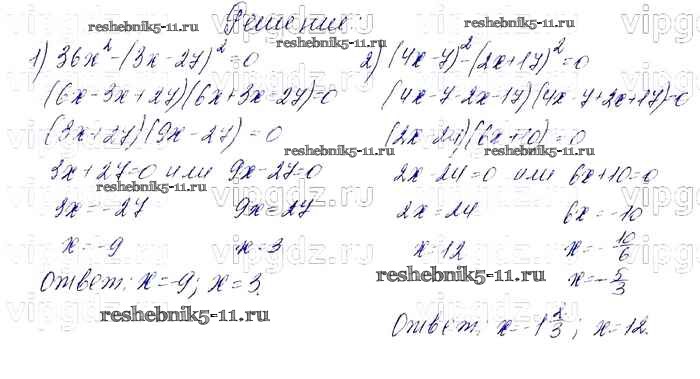 Решение:
1) 36x² - (3x - 27)² = 0
(6x - 3x + 27)(6x + 3x - 27) = 0
(3x + 27)(9x - 27) = 0
3x + 27 = 0 или 9x - 27 = 0
3x = -27 9x = 27
x = -9 x = 3
Ответ: x = -9; x = 3.
2) (4x - 7)² - (2x + 17)² = 0
(4x - 7 - 2x - 17)(4x - 7 + 2x + 17) = 0
(2x - 24)(6x + 10) = 0
2x - 24 = 0 или 6x + 10 = 0
2x = 24 6x = -10
x = 12 x = -10/6
x = -5/3
Ответ: x = -1 2/3; x = 12.
reshebnik5-11.ru
reshebnik5-11.ru
reshebnik5-11.ru
reshebnik5-11.ru
reshebnik5-11.ru
reshebnik5-11.ru
reshebnik5-11.ru
reshebnik5-11.ru
vipgdz.ru